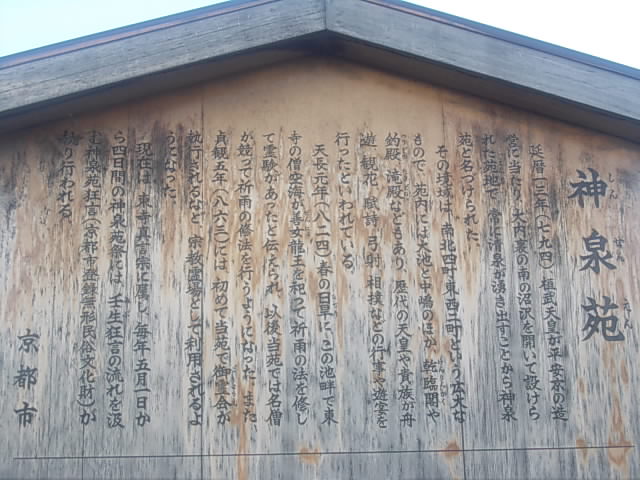 神泉苑
しん ぜん えん
延暦一三年(七九四)、桓武天皇が平安京の造
営に当たり、大内裏の南の沼沢を開いて設けら
れた苑地で、常に清泉が湧き出すことから神泉
苑と名づけられた。
その境域は、南北四町東西二町という広大な
もので、苑内には大池と中嶋のほか、乾臨閣や
釣殿、滝殿などもあり、歴代の天皇や貴族が舟
遊、観花、賦詩、弓射、相撲などの行事や遊宴を
行ったといわれている。
天長元年(八二四)春の日旱に、この池畔で東
寺の僧空海が善女龍王を祀って祈雨の法を修し
て霊験があったと伝えられ、以後当苑では名僧
が競って祈雨の修法を行うようになった。また、
貞観五年(八六三)には、初めて当苑で御霊会が
執行されるなど、宗教霊場として利用されるよ
うになった。
現在は、東寺真言宗に属し、毎年五月一日か
ら四日間の神泉苑祭には、壬生狂言の流れを汲
む神泉苑狂言(京都市登録無形民俗文化財)が
執り行われる。
京都市